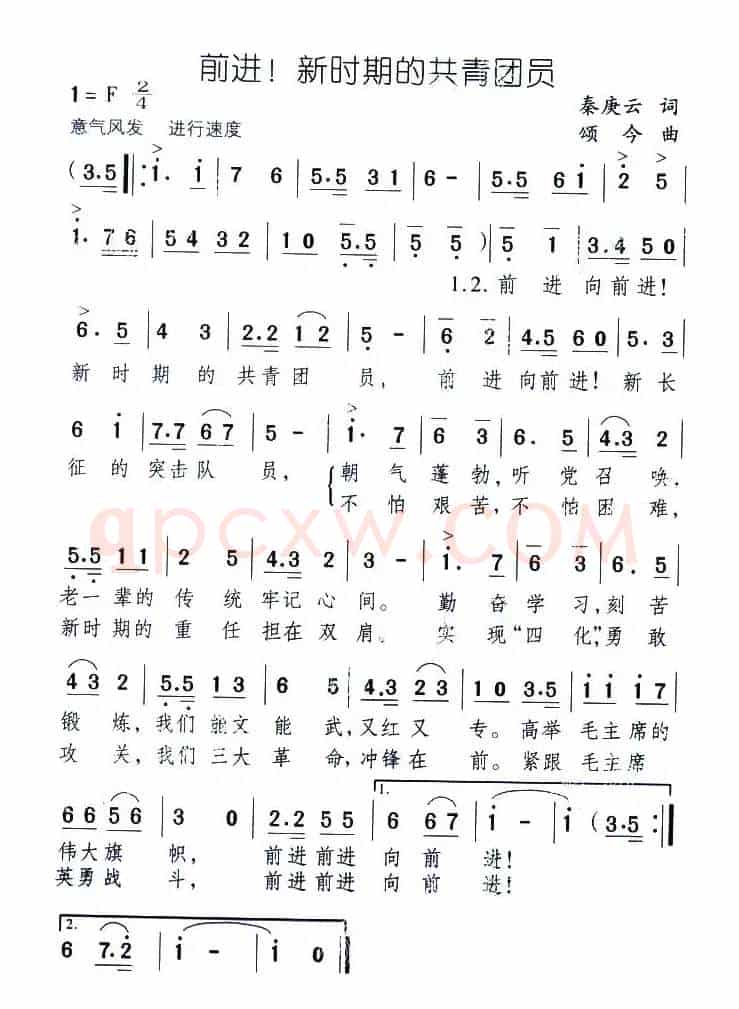 前进！新时期的共青团员
1=F 2/4
秦庚云 词
意气风发 进行速度
颂今 曲
(3.5 ‖: i. i | 7 6 | 5.5 3 1 | 6 - | 5.5 6 i | 2 5 |
i. 7 6 | 5 4 3 2 | 1 0 5.5 | 5 5 ) | 5 1 | 3.4 5 0 |
1.2.前 进 向前进！
6. 5 | 4 3 | 2.2 1 2 | 5 - | 6 2 | 4.5 6 0 | 5. 3 |
新 时 期 的 共青团 员， 前 进 向前进！新 长
6 i | 7.7 6 7 | 5 - | i. 7 | 6 3 | 6. 5 | 4.3 2 |
征 的 突击队 员， 朝 气 蓬 勃，听 党 召 唤，
不 怕 艰 苦，不 怕 困 难，
qpcxw.com
5.5 1 1 | 2 5 | 4.3 2 | 3 - | i. 7 | 6 3 | 6. 5 |
老一辈的 传 统 牢记心 间。 勤 奋 学 习，刻 苦
新时期的 重 任 担在双 肩。 实 现“四 化”，勇 敢
4 3 2 | 5.5 1 3 | 6 5 | 4.3 2 3 | 1 0 3.5 | i i i 7 |
锻 炼，我们能文 能 武，又红又 专。高举 毛主席的
攻 关，我们三大 革 命，冲锋在 前。紧跟 毛主席
1.
6 6 5 6 | 3 0 | 2.2 5 5 | 6 6 7 | i - | i (3.5 :‖
伟大旗 帜， 前进前进 向 前 进！
英勇战 斗， 前进前进 向 前 进！
2.
6 7.2 | i - | i 0 ‖